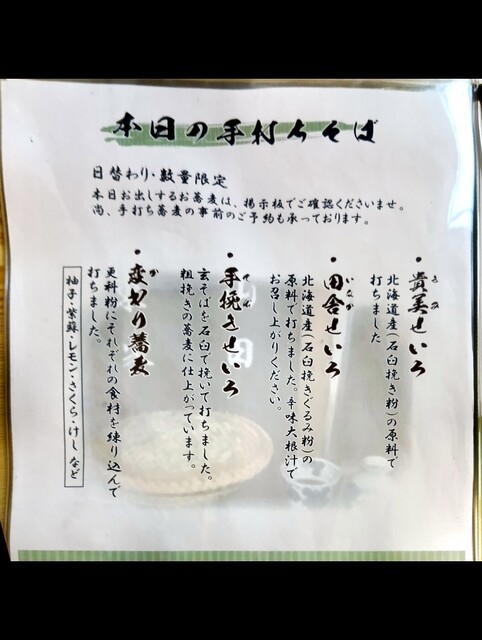 本日の手打ちそば
日替わり・数量限定
本日お出しするお蕎麦は、掲示板でご確認くださいませ。
尚、手打ち蕎麦の事前のご予約も承っております。
・貴美せいろ
きみ
北海道産(石臼挽き粉)の原料で
打ちました
・田舎せいろ
いなか
北海道産(石臼挽きぐるみ粉)の
原料で打ちました。辛味大根汁で
お召し上がりください。
・手挽きせいろ
てびき
玄そばを石臼で挽いて打ちました。
粗挽きの蕎麦に仕上がっています。
・変わり蕎麦
か
更科粉にそれぞれの食材を練り込んで
打ちました。
柚子・紫蘇・レモン・さくら・けし など